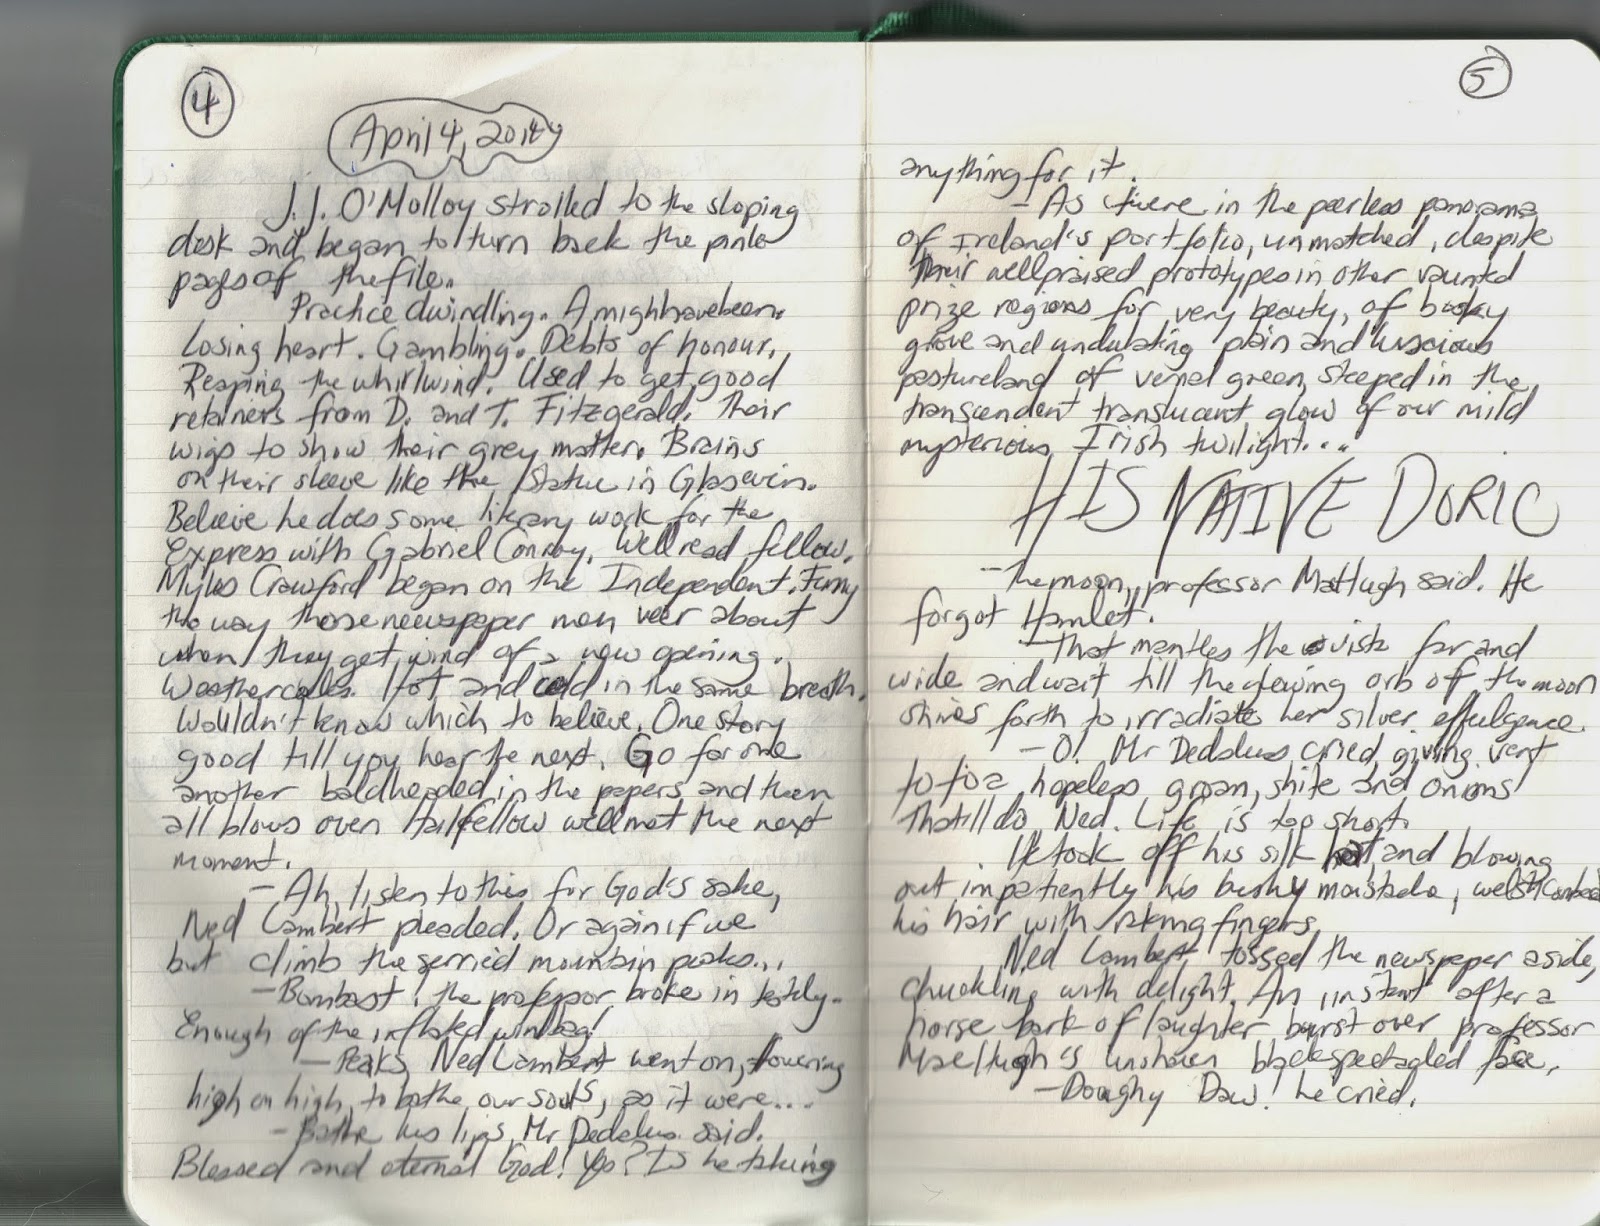 4
April 4, 2014
J.J. O'Molloy strolled to the sloping
desk and began to turn back the pink
pages of the file.
Practice dwindling. A mighthavebeen.
Losing heart. Gambling. Debts of honour.
Reaping the whirlwind. Used to get good
retainers from D. and T. Fitzgerald. Their
wigs to show their grey matter. Brains
on their sleeve like the statue in Glasnevin.
Believe he does some literary work for the
Express with Gabriel Conroy. Wellread fellow.
Myles Crawford began on the Independent. Funny
the way those newspaper men veer about
when they get wind of a new opening.
Weathercocks. Hot and cold in the same breath.
Wouldn't know which to believe. One story
good till you hear the next. Go for one
another baldheaded in the papers and then
all blows over. Hailfellow wellmet the next
moment.
- Ah, listen to this for God's sake,
Ned Lambert pleaded. Or again if we
but climb the serried mountain peaks...
- Bombast! the professor broke in testily.
Enough of the inflated windbag!
- Peaks, Ned Lambert went on, towering
high on high, to bathe our souls, as it were....
- Bathe his lips, Mr Dedalus said.
Blessed and eternal God! Yes? Is he taking
5
anything for it.
- As 'twere in the peerless panorama
of Ireland's portfolio, unmatched, despite
their wellpraised prototypes in other vaunted
prize regions for very beauty, of bosky
grove and undulating plain and luscious
pastureland of vernal green, steeped in the
transcendent translucent glow of our mild
mysterious Irish twilight....
HIS NATIVE DORIC
- The moon, professor MacHugh said. He
forgot Hamlet.
- That mantles the vista far and
wide and wait till the glowing orb of the moon
shines forth to irradiate her silver effulgence.
- O! Mr Dedalus cried, giving vent
to to a hopeless groan, shite and onions
That'll do Ned. Life is too short.
He took off his silk hat and blowing
out impatiently his bushy moustache, welshcombed
his hair with raking fingers.
Ned Lambert tossed the newspaper aside,
chuckling with delight. An instant after a
horse bark of laughter burst over professor
MacHugh's unshaven blackspectacled face.
- Doughy Daw! he cried.